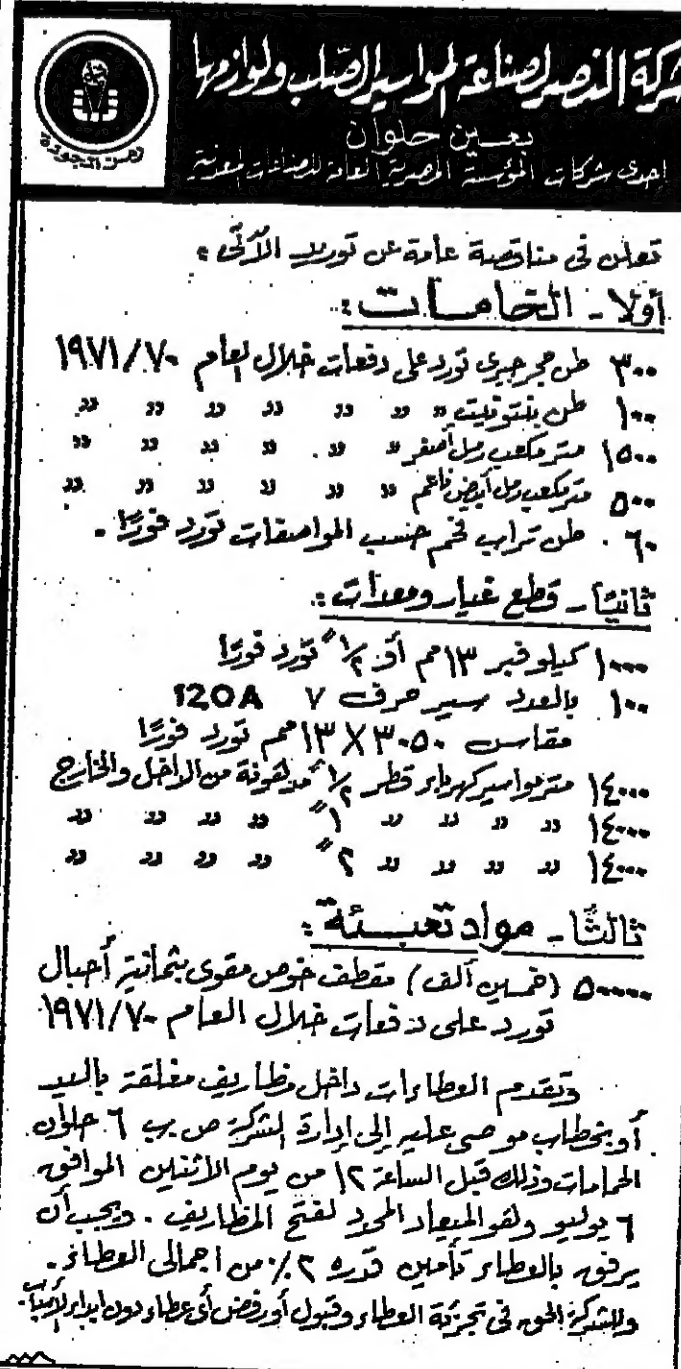 شركة النصر لصناعة المواسير الصلب ولوازمها
بعين حلوان
احدى شركات المؤسسة المصرية العامة للصناعات المعدنية
رمز الجودة
تعلن فى مناقصة عامة عن توريد الآتى :
أولا - الخامات :
٣٠٠ طن حجر جيرى تورد على دفعات خلال العام ٧٠/١٩٧١
١٠٠ طن بنتونيت " " " " " " "
١٥٠٠ متر مكعب رمل أصفر " " " " " " "
٥٠٠ متر مكعب رمل أبيض ناعم " " " " " " "
٦٠ طن تراب فحم حسب المواصفات تورد فورًا .
ثانيًا - قطع غيار ومعدات :
١٠٠٠ كيلو فبر ١٣ مم أو ١/٢" تورد فورًا
١٠٠ بالعدد سير حرف ٧ 120A
مقاس ٣٠٥٠ × ١٣ مم تورد فورًا
١٤٠٠٠ متر مواسير كهرباء قطر ١/٢" مدهونة من الداخل والخارج
١٤٠٠٠ " " " " ١" " " " "
١٤٠٠٠ " " " " ٢" " " " "
ثالثًا - مواد تعبئة :
٥٠٠٠٠ (خمسين ألف) مقطف خوص مقوى بثمانية أحبال
تورد على دفعات خلال العام ٧٠/١٩٧١
وتقدم العطاءات داخل مظاريف مغلقة باليد
أو بخطاب موصى عليه إلى إدارة الشركة ص ب ٦ حلوان
الحمامات وذلك قبل الساعة ١٢ من يوم الاثنين الموافق
٦ يوليو وهو الميعاد المحدد لفتح المظاريف . ويجب أن
يرفق بالعطاء تأمين قدره ٢٪ من اجمالى العطاء .
وللشركة الحق فى تجزئة العطاء وقبول أو رفض أى عطاء دون ابداء الأسباب .